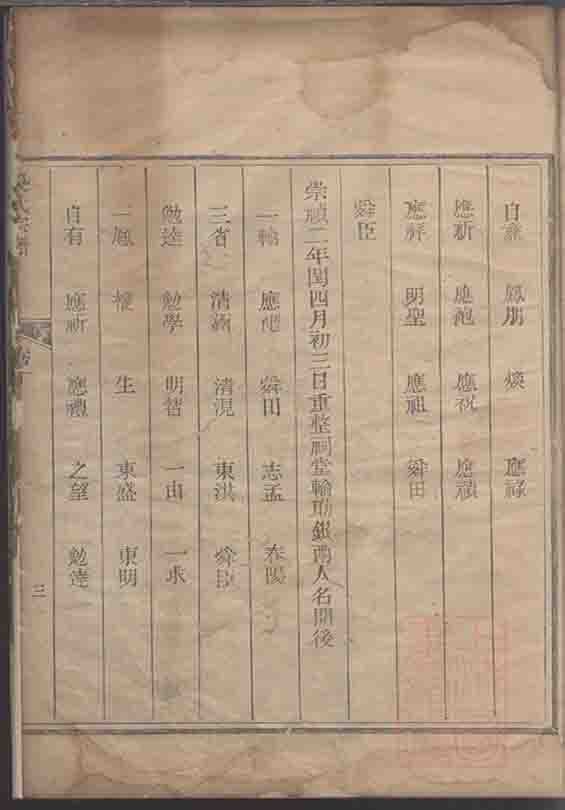 自 鳳朋 煥 應祿
應新 應袍 應祝 應禎
應祥 明聖 應祖 舜田
舜臣
崇禎二年閏四月初三日重整祠堂輸助銀兩人名開後
一輪 應袍 舜田 志孟 春陽
三省 清涵 清混 東洪 舜臣
勉達 勉學 明智 一由 一求
一鳳 權 生 東盛 東明
自有 應新 應禮 之望 勉達
三